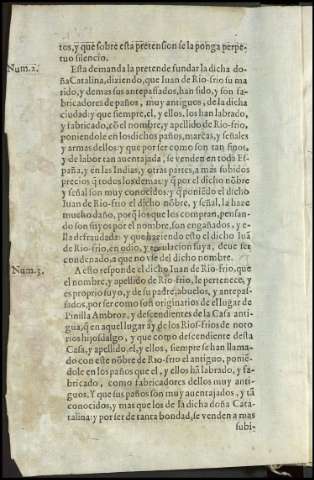 tos, y que sobre esta pretension se la ponga perpe-
tuo silencio.
Num. 2.
Esta demanda la pretende fundar la dicha do-
ña Catalina, diziendo, que Iuan de Rio-frio su ma
rido, y demas sus antepasados, han sido, y son fa-
bricadores de paños, muy antiguos, de la dicha
ciudad: y que siempre, el, y ellos, los han labrado,
y fabricado, cõ el nombre, y apellido de Rio-frio,
poniendole en los dichos paños, marcas, y señales
y armas dellos: y que por ser como son tan finos,
y de labor tan auentajada, se venden en toda Es-
paña, y en las Indias, y otras partes, a más subidos
precios q̃ todos los demas: y q̃ por el dicho nõbre
y señal son muy conocidos: y q̃ poniẽdo el dicho
Iuan de Rio-frio el dicho nõbre, y señal, la haze
mucho daño, porq̃ los que los compran, pensan-
do son suyos por el nombre, son engañados, y e-
lla defraudada: y que haziendo esto el dicho Iuã
de Rio-frio, en odio, y emulacion suya, deue ser
condenado, a que no vse del dicho nombre.
Num. 3.
A esto responde el dicho Iuan de Rio-frio, que
el nombre, y apellido de Rio-frio, le pertenece, y
es proprio suyo, y de su padre, abuelos, y antepas-
sados, por ser como son originarios de el lugar de
Pinilla Ambroz, y descendientes de la Casa anti-
gua, q̃ en aquel lugar ay de los Riosfrios de noto
rios hijosdalgo, y que como descendiente desta
Casa, y apellido, el, y ellos, siempre se han llama-
do con este nõbre de Rio-frio el antiguo, poniẽ-
dole en los paños que el, y ellos hã labrado, y fa-
bricado, como fabricadores dellos muy anti-
guos. Y que sus paños son muy auentajados, y tã
conocidos, y mas que los de la dicha doña Cata-
talina: y por ser de tanta bondad, se venden a mas
subi-